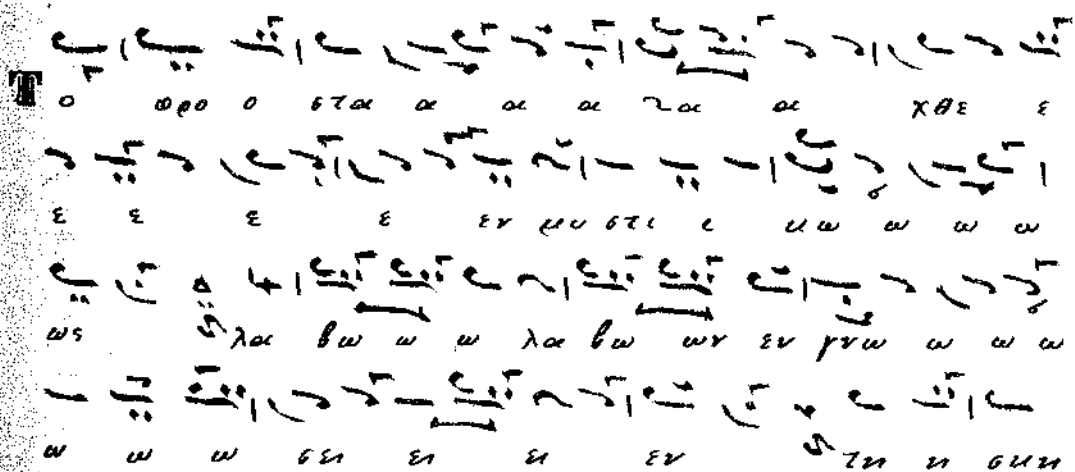 Το προ ο στα α α α χα α χθε ε
ε ε ε ε εν μυ στι ι κω ω ω ω
ως λα βω ω ω λα βω ων εν γνω ω ω ω
ω ω ω σει ει ει εν τη η σκη